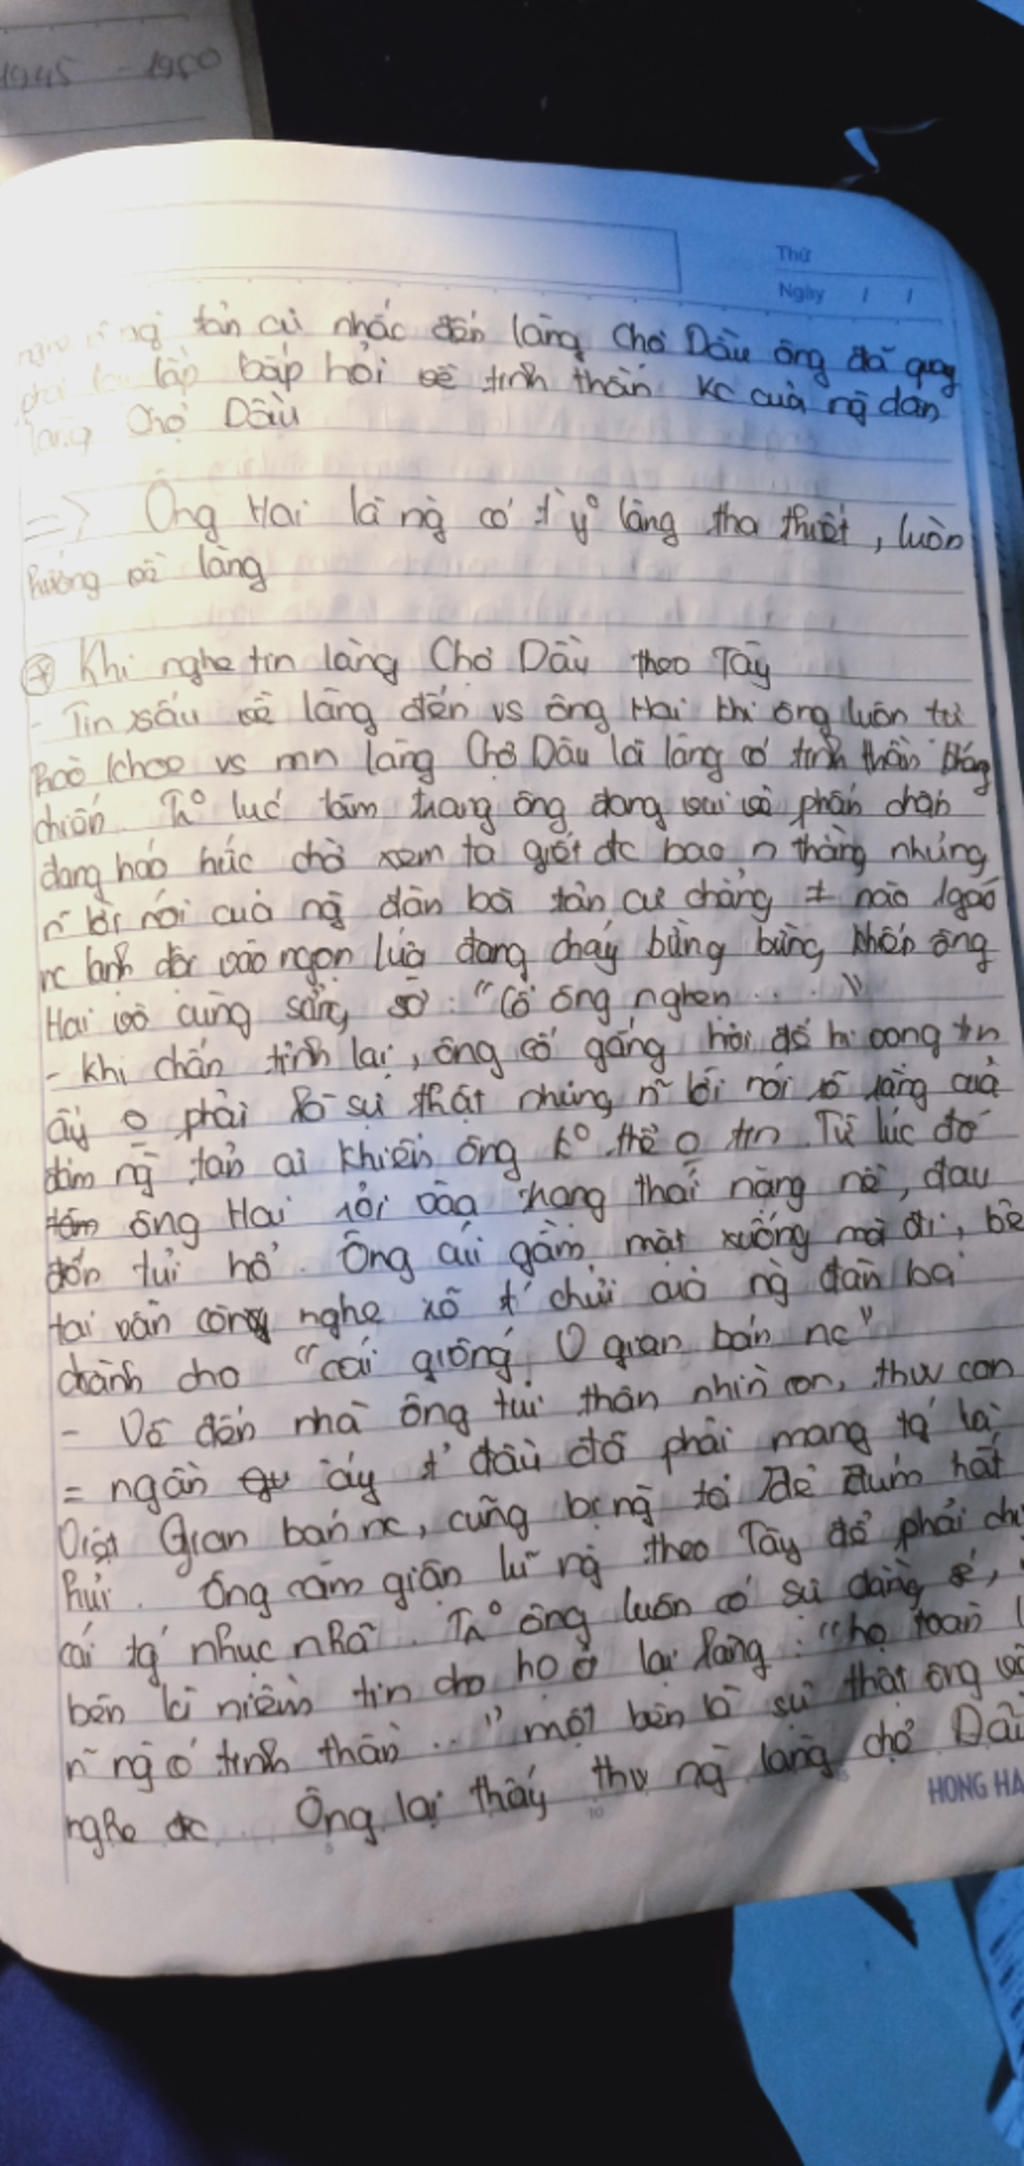 1945 - 1950
Thứ
Ngày / /
tản cư nhắc đến làng Chợ Dầu ông đã quay
lắp bắp hỏi về tinh thần kc của ng dân
làng Chợ Dầu
=> Ông Hai là ng có t y làng tha thiết, luôn
hướng về làng
* Khi nghe tin làng Chợ Dầu theo Tây
- Tin xấu về làng đến vs ông Hai khi ông luôn tự
hào khoe vs mn làng Chợ Dầu là làng có tinh thần kháng
chiến. lúc tâm trạng ông đang vui vẻ phấn chấn
đang háo hức chờ xem ta giết đc bao n thằng nhưng
n~ lời nói của ng đàn bà tản cư chẳng ≠ nào gáo
nc lạnh dội vào ngọn lửa đang cháy bừng bừng khiến ông
Hai vô cùng sững sờ: "Cổ ông nghẹn . . . ."
- Khi chấn tĩnh lại, ông cố gắng hỏi để hi vọng tin
ấy o phải là sự thật nhưng n~ lời nói rõ ràng của
đám ng tản cư khiến ông ko thể o tin. Từ lúc đó
ông Hai rơi vào trạng thái nặng nề, đau
đớn tủi hổ. Ông cúi gằm mặt xuống mà đi, bê
tai vẫn còng nghe rõ chửi của ng đàn bà
dành cho "cái giống V gian bán nc"
- Về đến nhà ông tủi thân nhìn con, thw con
= ngần ấy đầu đã phải mang tg là
Việt Gian bán nc, cũng bị ng ta rẻ rúm hắt
hủi. Ông căm giận lũ ng theo Tây để phải
cái tg nhục nhã. ông luôn có sự dằng xé,
bên là niềm tin cho họ ở lại làng: "họ toàn
n~ ng có tinh thần .." một bên là sự thật ông
nghe đc. Ông lại thấy thw ng làng chợ Dầu
HONG HA